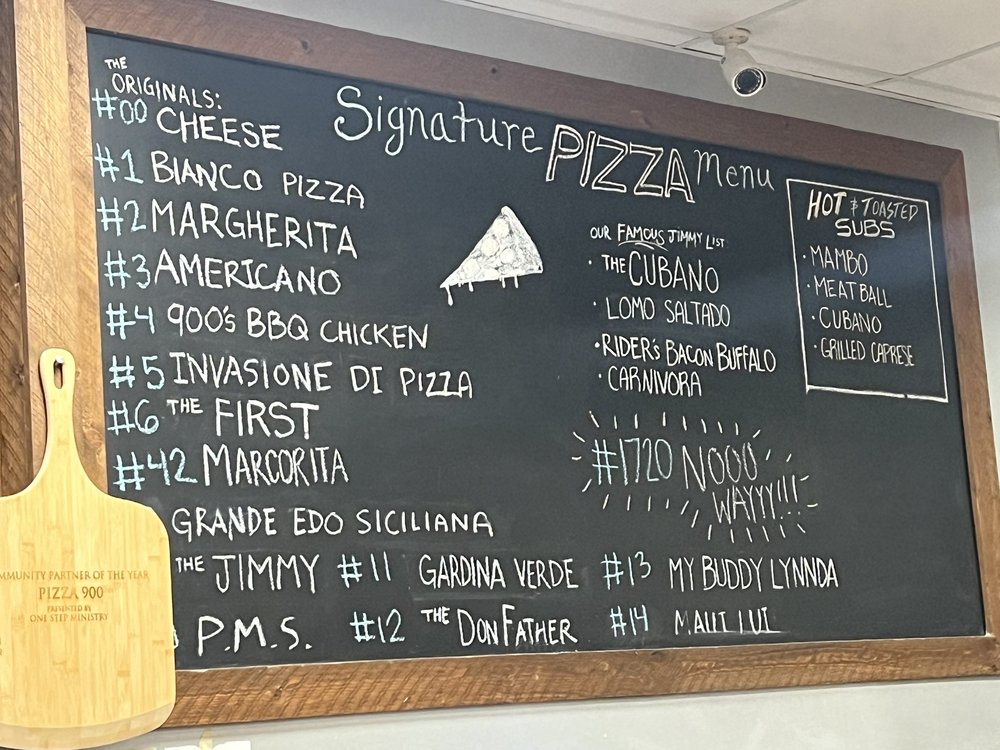 THE
ORIGINALS:
#00 CHEESE
#1 BIANCO PIZZA
#2 MARGHERITA
#3 AMERICANO
#4 900's BBQ CHICKEN
#5 INVASIONE DI PIZZA
#6 THE FIRST
#42 MARCORITA
GRANDE EDO SICILIANA
THE JIMMY
P.M.S.
#11 GARDINA VERDE
#12 THE DONFATHER
#13 MY BUDDY LYNNDA
#14 MAUI LUI
Signature PIZZA Menu
OUR FAMOUS JIMMY LIST
· THE CUBANO
· LOMO SALTADO
· RIDER's BACON BUFFALO
· CARNIVORA
#1720 NOOO
WAYYY!!!
HOT & TOASTED
SUBS
· MAMBO
· MEATBALL
· CUBANO
· GRILLED CAPRESE
MMUNITY PARTNER OF THE YEAR
PIZZA 900
PRESENTED BY
ONE STEP MINISTRY